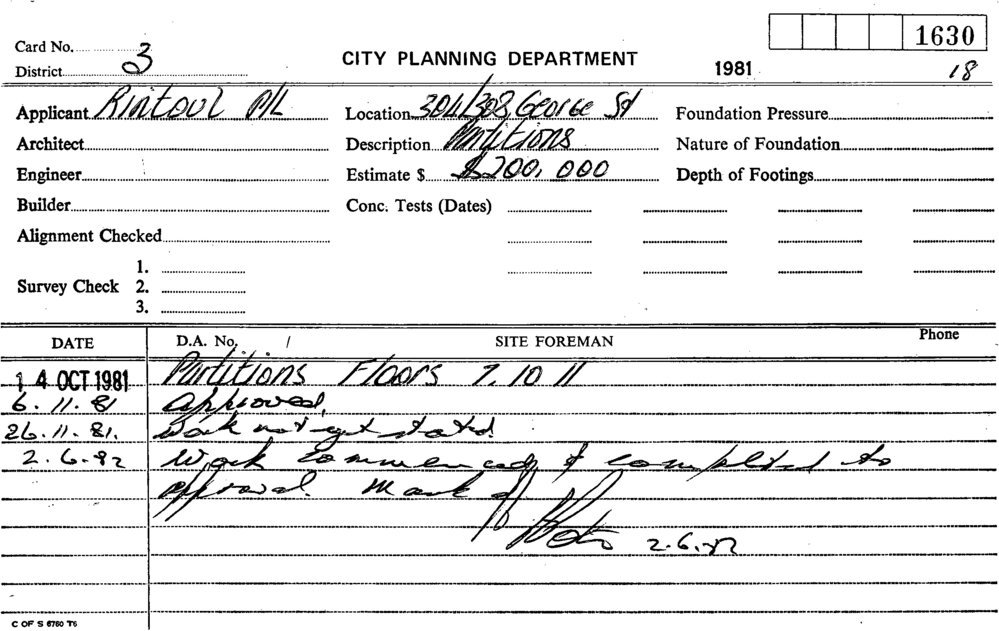 1630
Card No. 3
CITY PLANNING DEPARTMENT
District
1981
18
Applicant Rintoul P/L
Location 304/308 George St
Foundation Pressure
Architect
Description Partitions
Nature of Foundation
Engineer
Estimate $ $200,000
Depth of Footings
Builder
Conc. Tests (Dates)
Alignment Checked
1.
Survey Check 2.
3.
DATE
D.A. No. /
SITE FOREMAN
Phone
14 OCT 1981 Partitions Floors 7. 10 11
6.11.81 Approved.
26.11.81. Work not yet started.
2.6.82 Work commenced & completed to
approval. Mark
2.6.82
C OF S 6760 T6